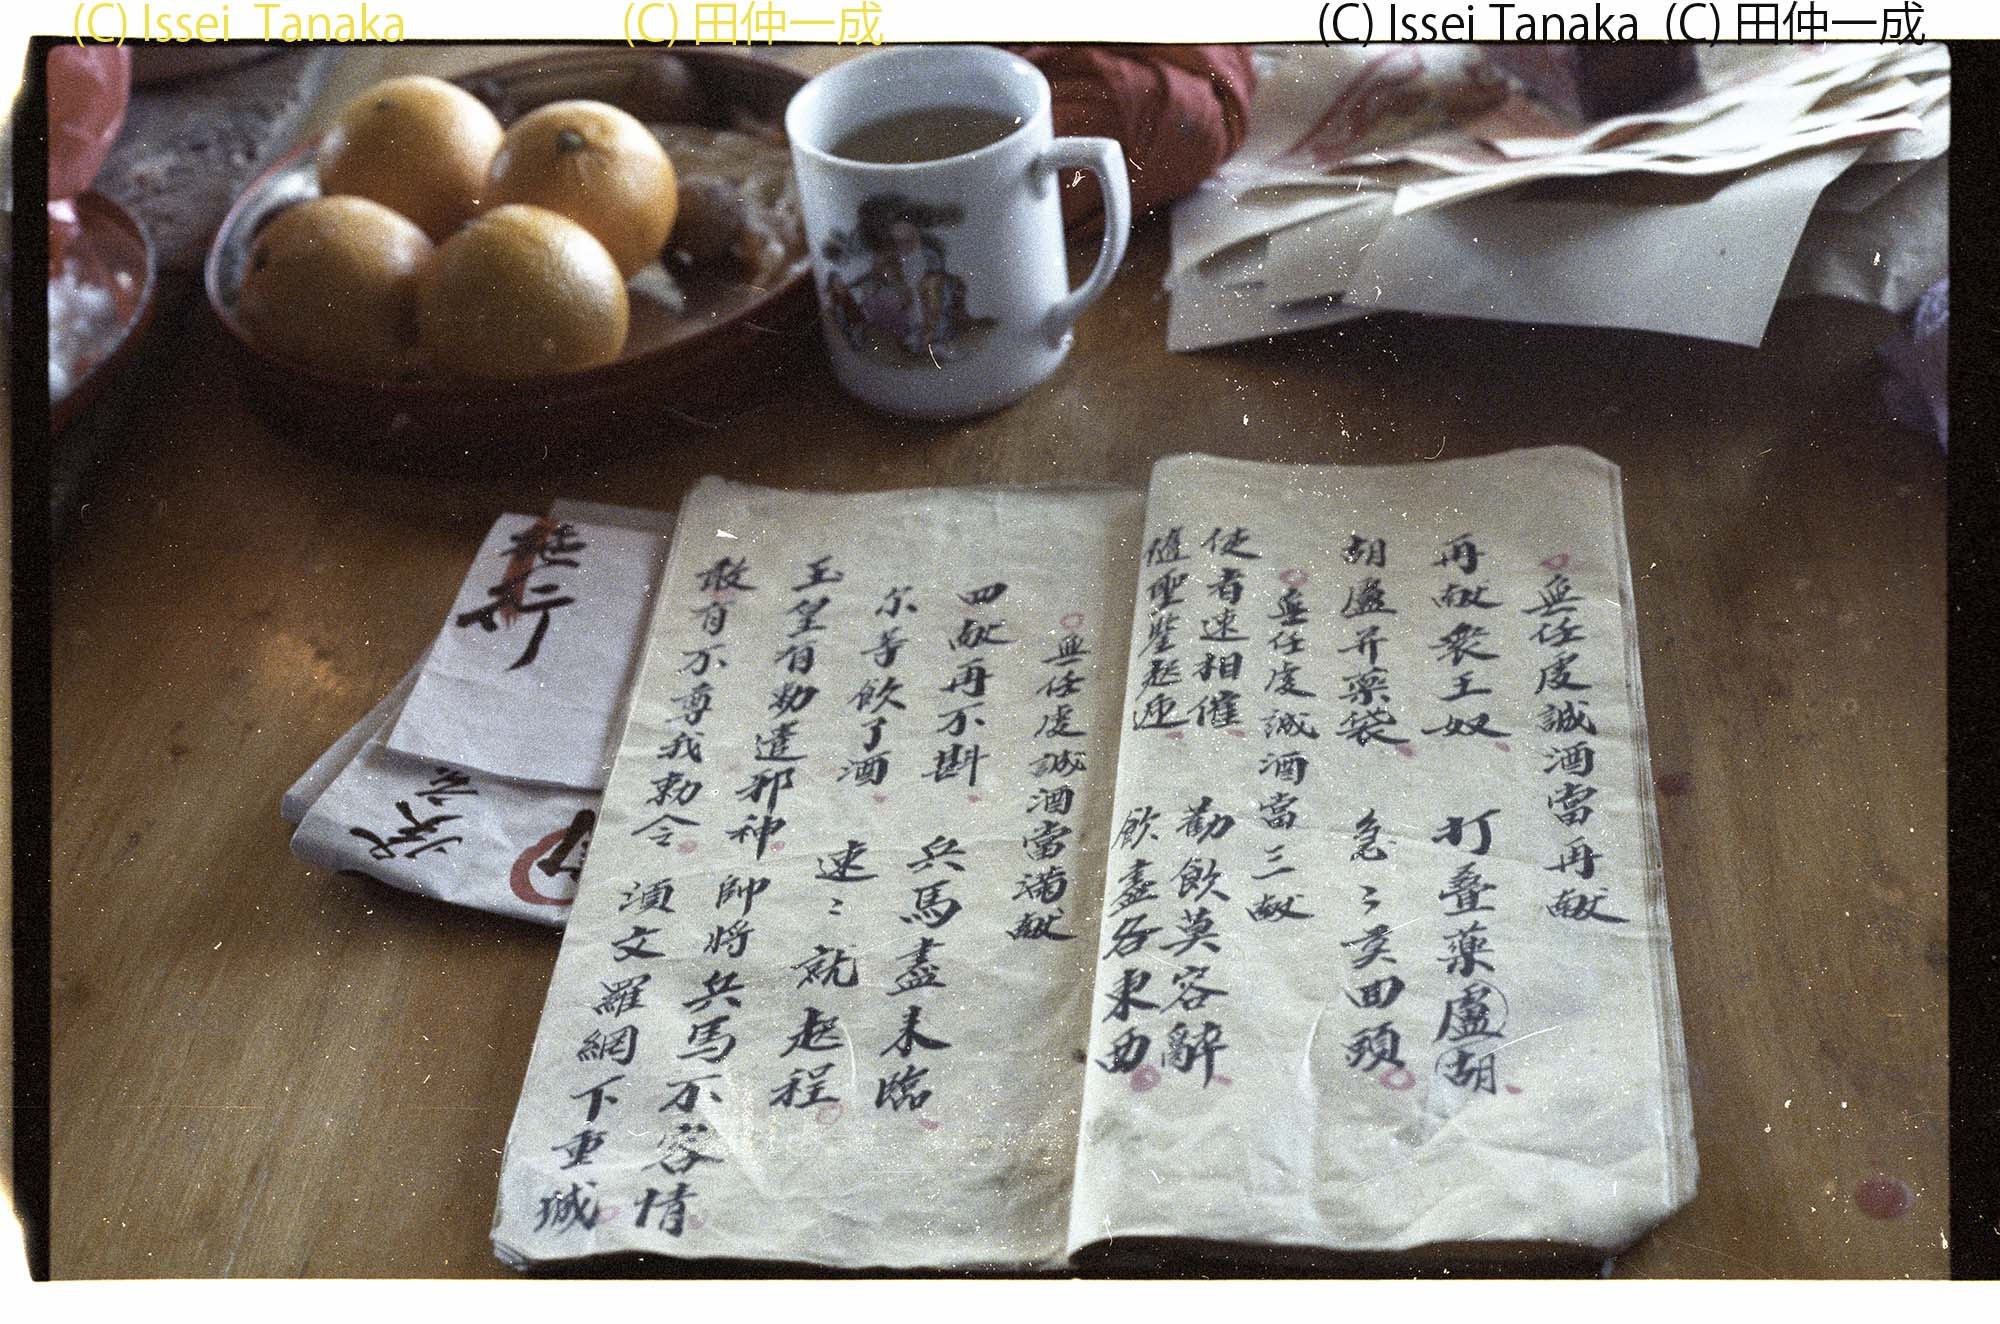 (C) Issei Tanaka
(C) 田仲一成
(C) Issei Tanaka (C) 田仲一成
無任虔誠酒當再献
再献衆王奴 打叠藥盧胡
胡盧并藥袋 急々莫回頭
無任虔誠酒當三献
使者速相催 勸飲莫容辭
隨聖鑒起速 飲盡各東西
無任虔誠酒當滿献
四献再不斟 兵馬盡來臨
尔等飲了酒 速々就起程
玉皇有勅遣邪神 帥将兵馬不容情
敢有不尊我勅令 須文羅網下重城